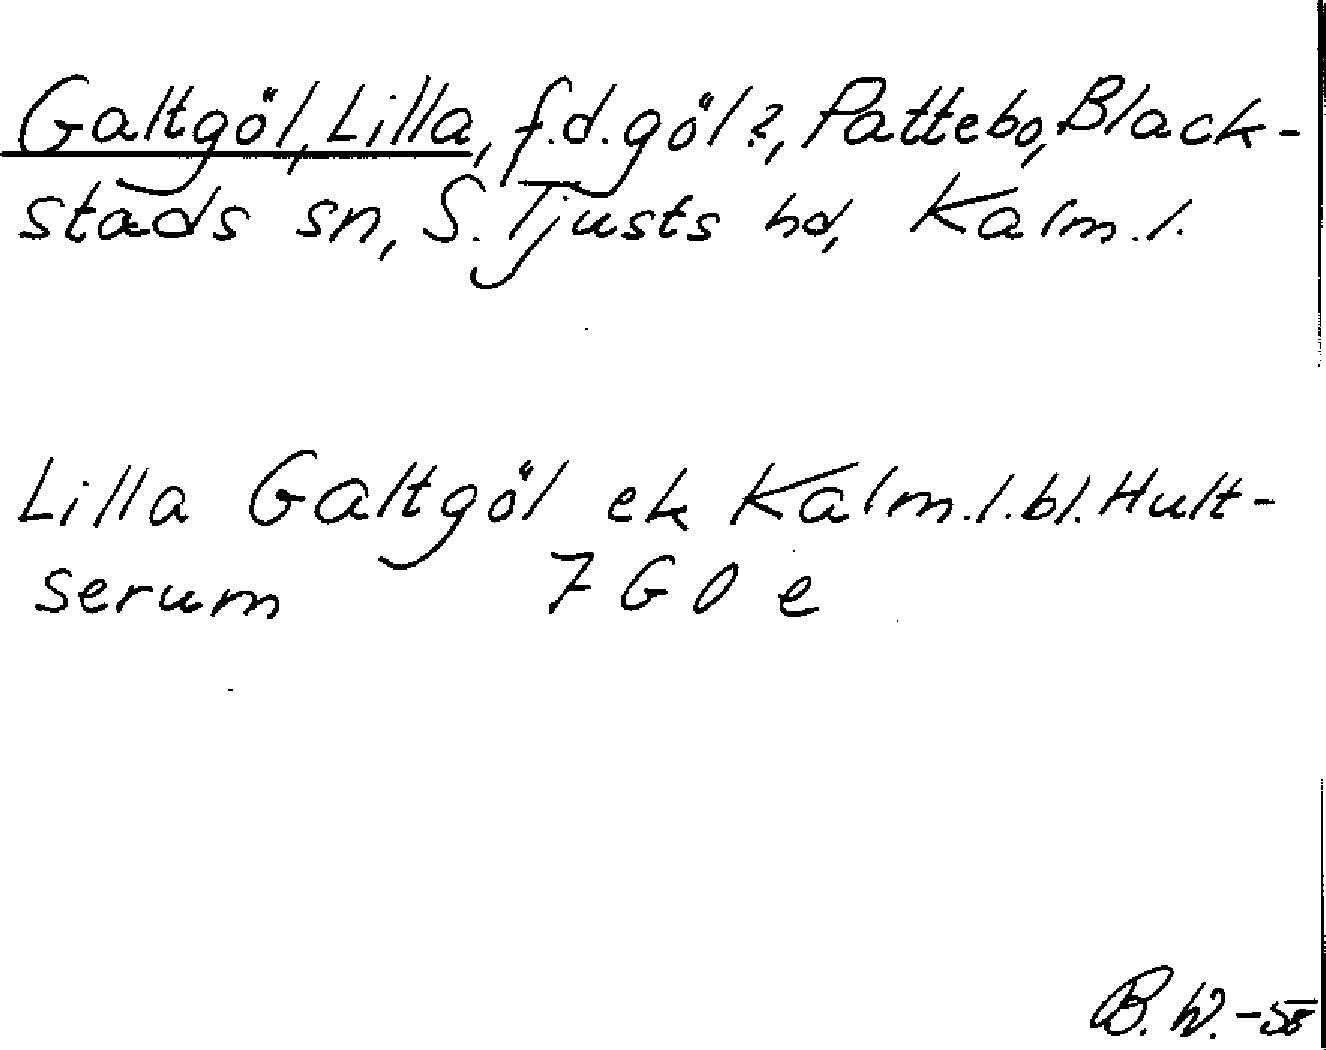 Galtgöl, Lilla, f.d. göl?, Pattebo, Black-
stads sn, S. Tjusts hd, Kalm. l.
Lilla Galtgöl ek Kalm.l.bl. Hult-
serum 7 G 0 e
B. W. -58